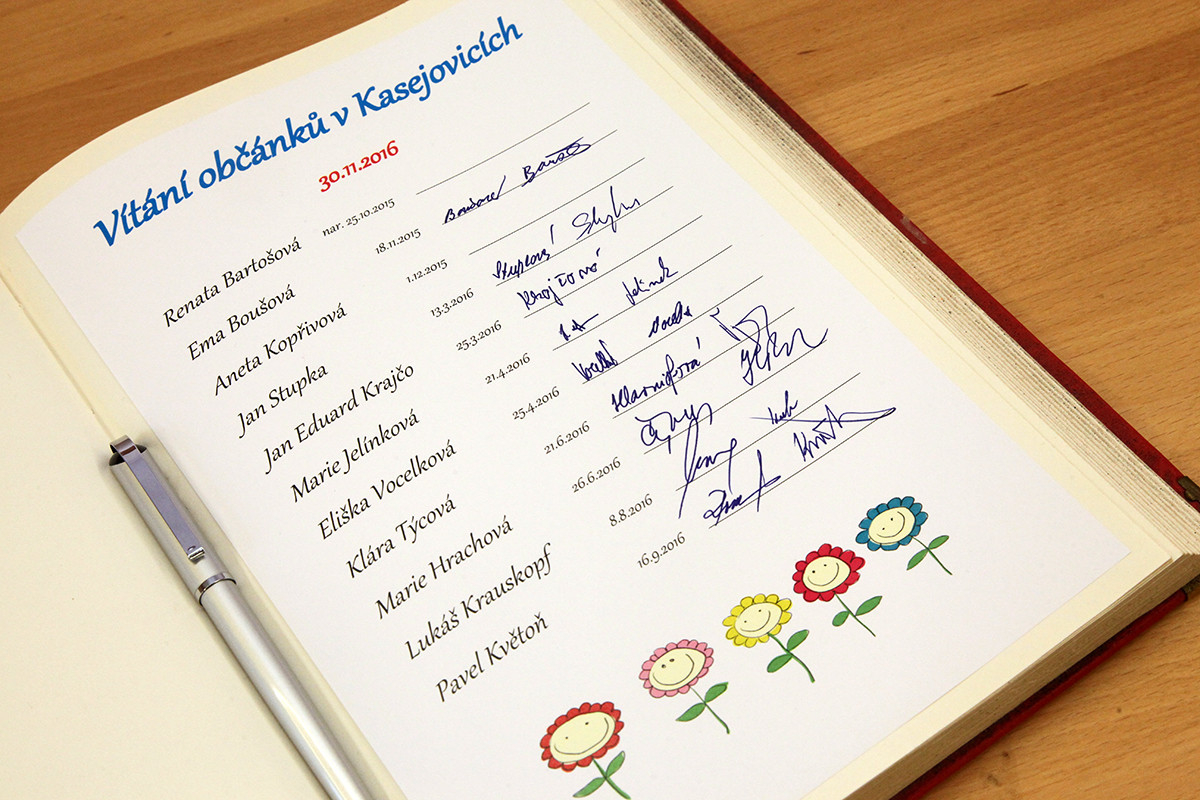 Vítání občánků v Kasejovicích
30.11.2016
Renata Bartošová nar. 25.10.2015
Ema Boušová 18.11.2015
Aneta Kopřivová 1.12.2015
Jan Stupka 13.3.2016 Stupková
Jan Eduard Krajčo 25.3.2016
Marie Jelínková 21.4.2016 Jelínek
Eliška Vocelková 25.4.2016
Klára Týcová 21.6.2016
Marie Hrachová 26.6.2016
Lukáš Krauskopf 8.8.2016
Pavel Květoň 16.9.2016